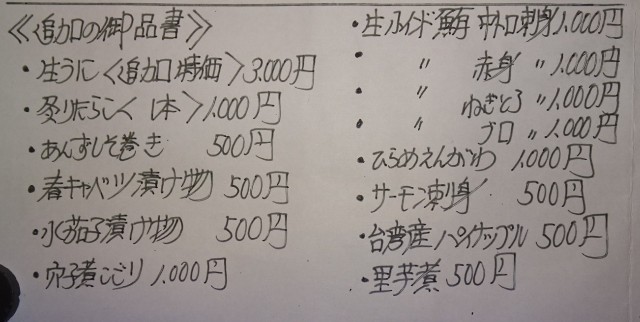 《追加の御品書》
・生うに〈追加特価〉3,000円
・炙りたらこ〈1本〉1,000円
・あんずしそ巻き 500円
・春キャベツ漬け物 500円
・水茄子漬け物 500円
・穴子煮こごり 1,000円
・生インド鮪 中トロ刺身 1,000円
・〃 赤身 〃 1,000円
・〃 ねぎとろ 〃 1,000円
・〃 ブロ 〃 1,000円
・ひらめえんがわ 1,000円
・サーモン刺身 500円
・台湾産パイナップル 500円
・里芋煮 500円